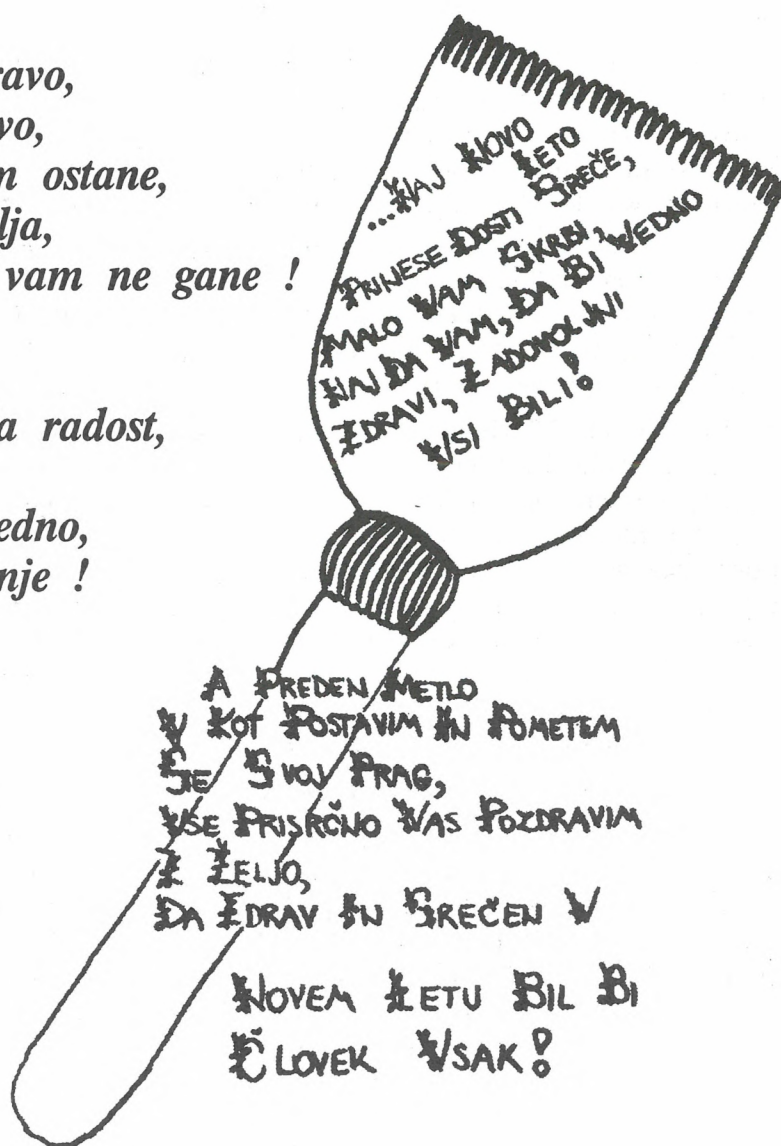 ravo,
vo,
n ostane,
lja,
vam ne gane !
a radost,
edno,
nje !
...NAJ NOVO
LETO
PRINESE DOSTI SREČE,
MALO VAM SKRBI,
NAJ DA VAM, DA BI VEDNO
ZDRAVI, ZADOVOLJNI
VSI BILI!
A PREDEN METLO
V KOT POSTAVIM IN POMETEM
ŠE SVOJ PRAG,
VSE PRISRČNO VAS POZDRAVIM
Z ŽELJO,
DA ZDRAV IN SREČEN V
NOVEM LETU BIL BI
ČLOVEK VSAK!